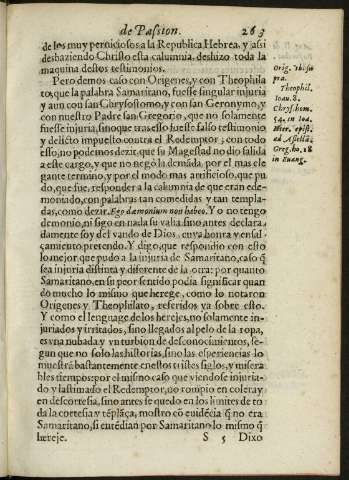 de Passion. 263
de los muy perniciosos a la Republica Hebrea, y assi
deshaziendo Christo esta calumnia, deshizo toda la
maquina destos testimonios.
Pero demos caso con Origenes, y con Theophila
to, que la palabra Samaritano, fuesse singular injuria
y aun con san Chrysostomo, y con san Geronymo, y
con nuestro Padre san Gregorio, que no solamente
fuesse injuria, sino que tras esso fuesse falso testimonio
y delicto impuesto contra el Redemptor; con todo
esso, no podemos dezir, que su Magestad no dio salida
a este cargo, y que no negò la demãda, por el mas ele
gante termino, y por el modo mas artificioso, que pu
do, que fue, responder a la calumnia de que eran ede-
moniado, con palabras tan comedidas y tan templa-
das, como dezir. Ego dæmonium non habeo. Yo no tengo
demonio, ni sigo en nada su valia sino antes declara
damente soy del vando de Dios, cuya honra y ensal-
çamiento pretendo. Y digo, que respondio con esto
lo mejor que pudo a la injuria de Samaritano, caso q̃
sea injuria distinta y diferente de la otra: por quanto
Samaritano, en su peor sentido podia significar quan
do mucho lo mismo que herege, como lo notaron
Origenes y Theophilato, referidos ya sobre esto.
Y como el lenguage de los herejes, no solamente in-
juriados y irritados, sino llegados al pelo de la ropa,
es vna nubada y vn turbion de desconocimientos, se-
gun que no solo las historias, sino las esperiencias lo
muestrã bastantemente en estos tristes siglos, y misera
bles tiempos: por el mismo caso que viendose injuria-
do y lastimado el Redemptor, no rompio en colera y
en descortesia, sino antes se quedo en los limites de to
da la cortesia y tẽplãça, mostro cõ euidẽcia q̃ no era
Samaritano, si entẽdian por Samaritano lo mismo q̃
hereje. S 5 Dixo
Orig. Thisu
pra.
Theophil.
Ioan. 8.
Chrys. hom.
54. in Ioa.
Hier. epist.
ad Asellã.
Greg. ho. 18
in Euang.